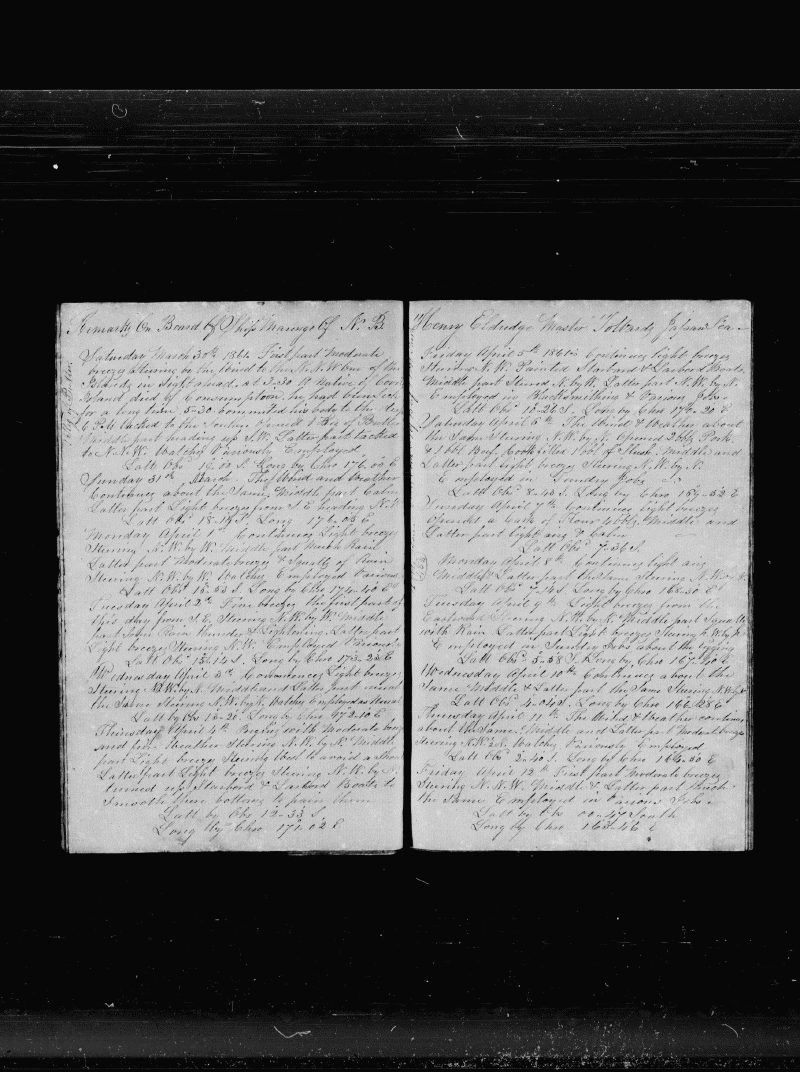 Remarks On Board of Ship Marengo Of N. B.
Saturday March 30th 1861. First part Moderate
breezes Steering on the Wind to the N.N.W One of the
Islands in sight ahead at 3-30 A Native of
Island died of Consumption, he had been sick
for a long time 5-30 Committed his body to the deep
6 P.M. tacked to the Southd
Middle part heading up S.W. Latter part tacked
to N.N.W. Watches Variously Employed
Latt Obs 19-02 S. Long by Chro 176-02 E
Sunday 31st March The Wind and Weather
Continues about the Same, Middle part Calm
Latter part Light breezes from S E heading N.W
Latt Obs 18-19 S. Long 176-05 E
Monday April 1st Continues Light breezes
Steering N.W. by W. Middle part Much Rain
Latter part Moderate breezes & Squalls of Rain
Steering N.W. by W. Watches Employed Various
Latt Obs 16-53 S. Long by Chro 174-40 E
Tuesday April 2nd Fine breezes the first part of
this day from S.E. Steering N.W. by W. Middle
part Some Rain Thunder & Lightning Latter part
Light breezes Steering N.W. Employed Various
Latt Obs 15-14 S. Long by Chro 173-23 E
Wednesday April 3rd Commences Light breezes
Steering N.W. by N. Middle and Latter part
the Same Steering N.W. by N. Watches Employed as Usual
Latt by Obs 13-21 Long by Chro 172-10 E
Thursday April 4th Begins with Moderate breezes
and fine Weather Steering N.W. by N. Middle
part Light breezes Steering West to avoid a shoal
Latter part Light breezes Steering N.W. by N.
turned up Starboard & Larboard Boats to
Smooth their bottoms to paint them
Latt by Obs 12-33 S.
Long by Chro 171-02 E
Henry Eldredge Master Towards Japan Sea
Friday April 5th 1861 Continues light breezes
Steering N.N.W. Painted Starboard & Larboard Boats
Middle part Steered N. by W. Latter part N.W. by N.
Employed in Blacksmithing & Various Jobs
Latt Obs 10-26 S. Long by Chro 170-20 E
Saturday April 6th The Wind & Weather about
the Same Steering N.W. by N. Opened 2 bbls Pork
& 1 bbl Beef Cook filled 1 bbl of Slush. Middle and
Latter part light breezes Steering N.W. by N.
Employed in Sundry Jobs
Latt Obs 8-43 S. Long by Chro 169-52 E
Sunday April 7th Continues light breezes
Opened a Cask of Flour 4 bbls Middle and
Latter part light airs & Calm
Latt Obs 7-36 S.
Monday April 8th Continues light airs
Middle & Latter part the Same Steering N.W.
Latt Obs 7-14 S. Long by Chro 168-30 E
Tuesday April 9th Light breezes from the
Eastward Steering N.W. by N. Middle part Squalls
with Rain Latter part Light breezes Steering N.W. by N.
Employed in Sundry Jobs about the rigging
Latt Obs 5-58 S. Long by Chro 167-40 E
Wednesday April 10th Continues about the
Same Middle & Latter part the Same Steering N.W. by N.
Latt Obs 4-04 S. Long by Chro 166-28 E
Thursday April 11th The Wind & Weather continues
about the Same Middle and Latter part Moderate breezes
Steering N.W. by N. Watches Variously Employed
Latt Obs 2-40 S. Long by Chro 164-50 E
Friday April 12th First part Moderate breezes
Steering N.N.W. Middle & Latter part Much
the Same Employed in Various Jobs
Latt by Obs 00-47 South
Long by Chro 163-46 E